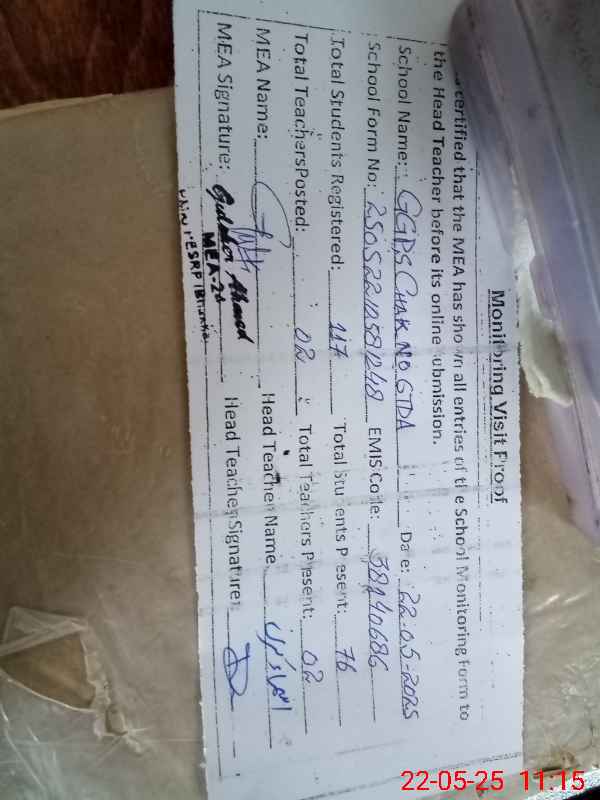 Monitoring Visit Proof
certified that the MEA has shown all entries of the School Monitoring Form to
the Head Teacher before its online submission.
School Name: GGPS CHAK NO 6TDA Date: 22-05-2025
School Form No: EMIS Code: 38240686
Total Students Registered: 117 Total Students Present: 76
Total Teachers Posted: 02 Total Teachers Present: 02
MEA Name: Head Teacher Name
MEA Signature: Ahmed Head Teacher Signature:
MEA-20
22-05-25 11:15